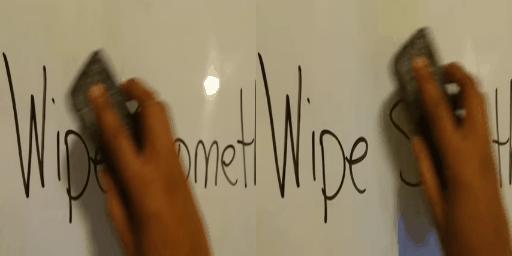 Wipe omet
Wipe S th